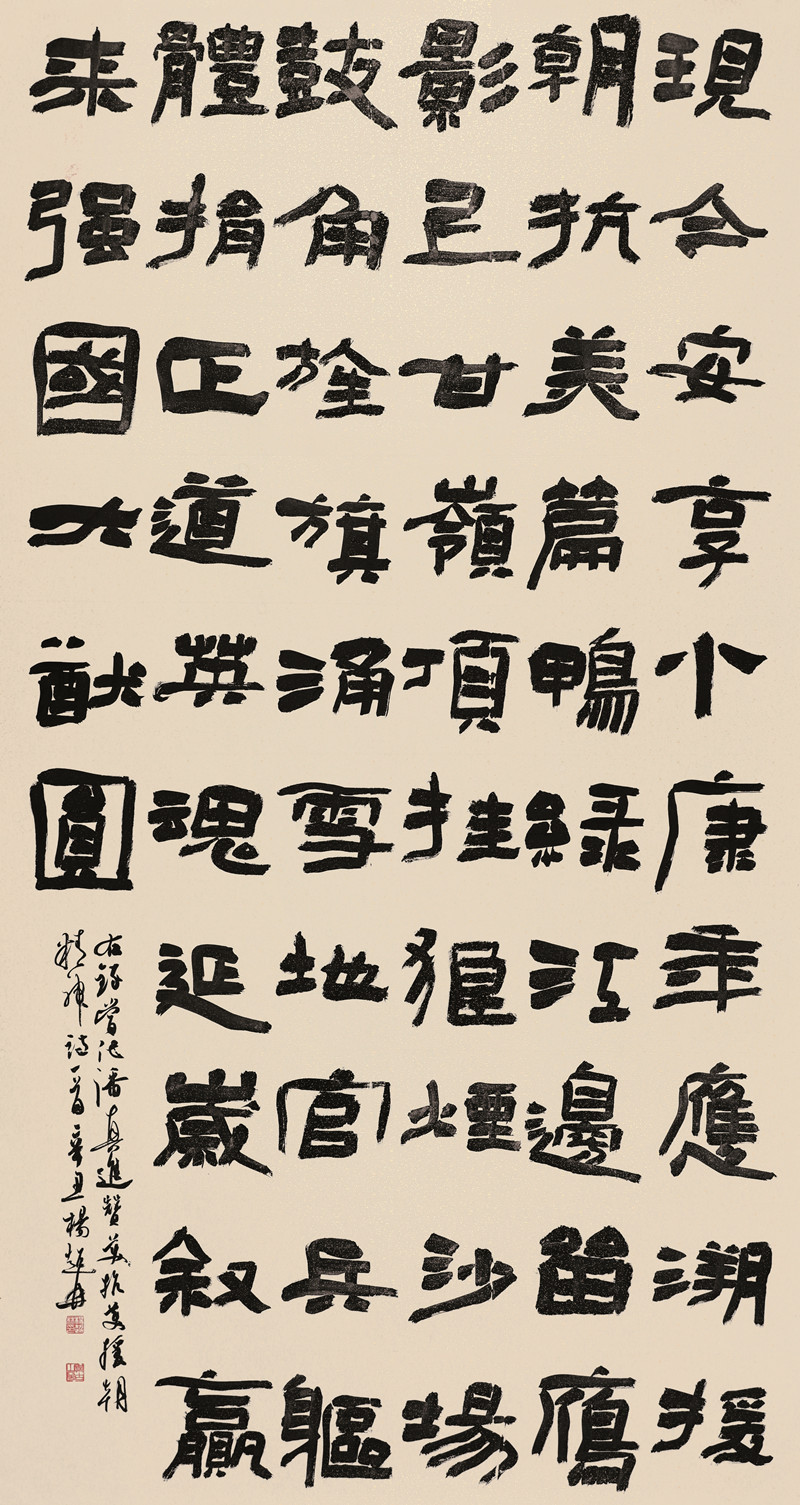 現今安享小康年應溯援
朝抗美篇鴨綠江邊留鴈
影上甘嶺頂挂狼煙沙場
鼓角旌旗涌雪地官兵軀
體捐正道英魂延歲叙贏
来强國大猷圓
右錄當代潘真進贊美抗美援朝
精神詩一首辛丑楊超